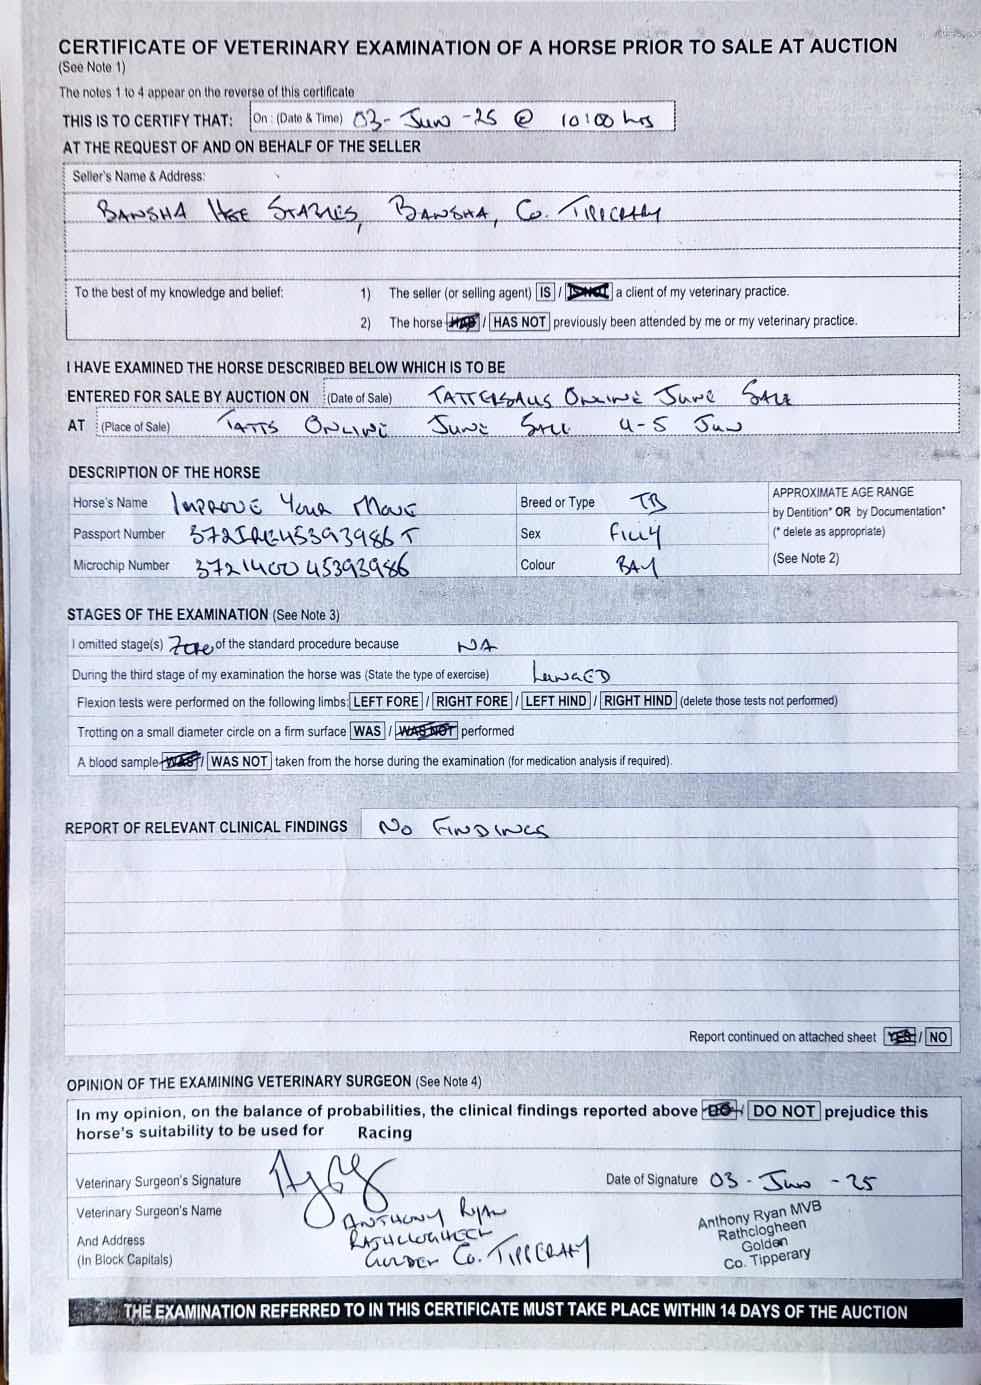 CERTIFICATE OF VETERINARY EXAMINATION OF A HORSE PRIOR TO SALE AT AUCTION
(See Note 1)
The notes 1 to 4 appear on the reverse of this certificate
THIS IS TO CERTIFY THAT: On : (Date & Time) 03-Jun-25 @ 10:00 hrs
AT THE REQUEST OF AND ON BEHALF OF THE SELLER
Seller's Name & Address:
BANSHA HSE STABLES, BANSHA, Co. TIPPERARY
To the best of my knowledge and belief: 1) The seller (or selling agent) IS / IS NOT a client of my veterinary practice.
2) The horse HAS / HAS NOT previously been attended by me or my veterinary practice.
I HAVE EXAMINED THE HORSE DESCRIBED BELOW WHICH IS TO BE
ENTERED FOR SALE BY AUCTION ON (Date of Sale) TATTERSALLS ONLINE JUNE SALE
AT (Place of Sale) TATTS ONLINE JUNE SALE 4-5 JUN
DESCRIPTION OF THE HORSE
Horse's Name IMPROVE YOUR MOVE Breed or Type TB APPROXIMATE AGE RANGE
by Dentition* OR by Documentation*
Passport Number 372IRE45393986T Sex FILLY (* delete as appropriate)
(See Note 2)
Microchip Number 372140045393986 Colour BAY
STAGES OF THE EXAMINATION (See Note 3)
I omitted stage(s) Zero of the standard procedure because NA
During the third stage of my examination the horse was (State the type of exercise) LUNGED
Flexion tests were performed on the following limbs: LEFT FORE / RIGHT FORE / LEFT HIND / RIGHT HIND (delete those tests not performed)
Trotting on a small diameter circle on a firm surface WAS / WAS NOT performed
A blood sample WAS / WAS NOT taken from the horse during the examination (for medication analysis if required).
REPORT OF RELEVANT CLINICAL FINDINGS NO FINDINGS
Report continued on attached sheet YES / NO
OPINION OF THE EXAMINING VETERINARY SURGEON (See Note 4)
In my opinion, on the balance of probabilities, the clinical findings reported above DO / DO NOT prejudice this
horse's suitability to be used for Racing
Veterinary Surgeon's Signature Date of Signature 03-Jun-25
Veterinary Surgeon's Name ANTHONY RYAN
And Address RATHCLOGHEEN
(In Block Capitals) GOLDEN Co. TIPPERARY
Anthony Ryan MVB
Rathclogheen
Golden
Co. Tipperary
THE EXAMINATION REFERRED TO IN THIS CERTIFICATE MUST TAKE PLACE WITHIN 14 DAYS OF THE AUCTION